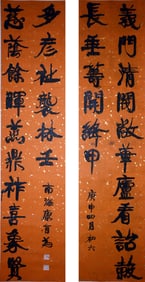 義門清閥啟華廬看詒穀
長垂開絳甲
庚申四月初六
慈蔭餘暉鼎祚喜象賢
多彥祉襲林壬
南海康有為